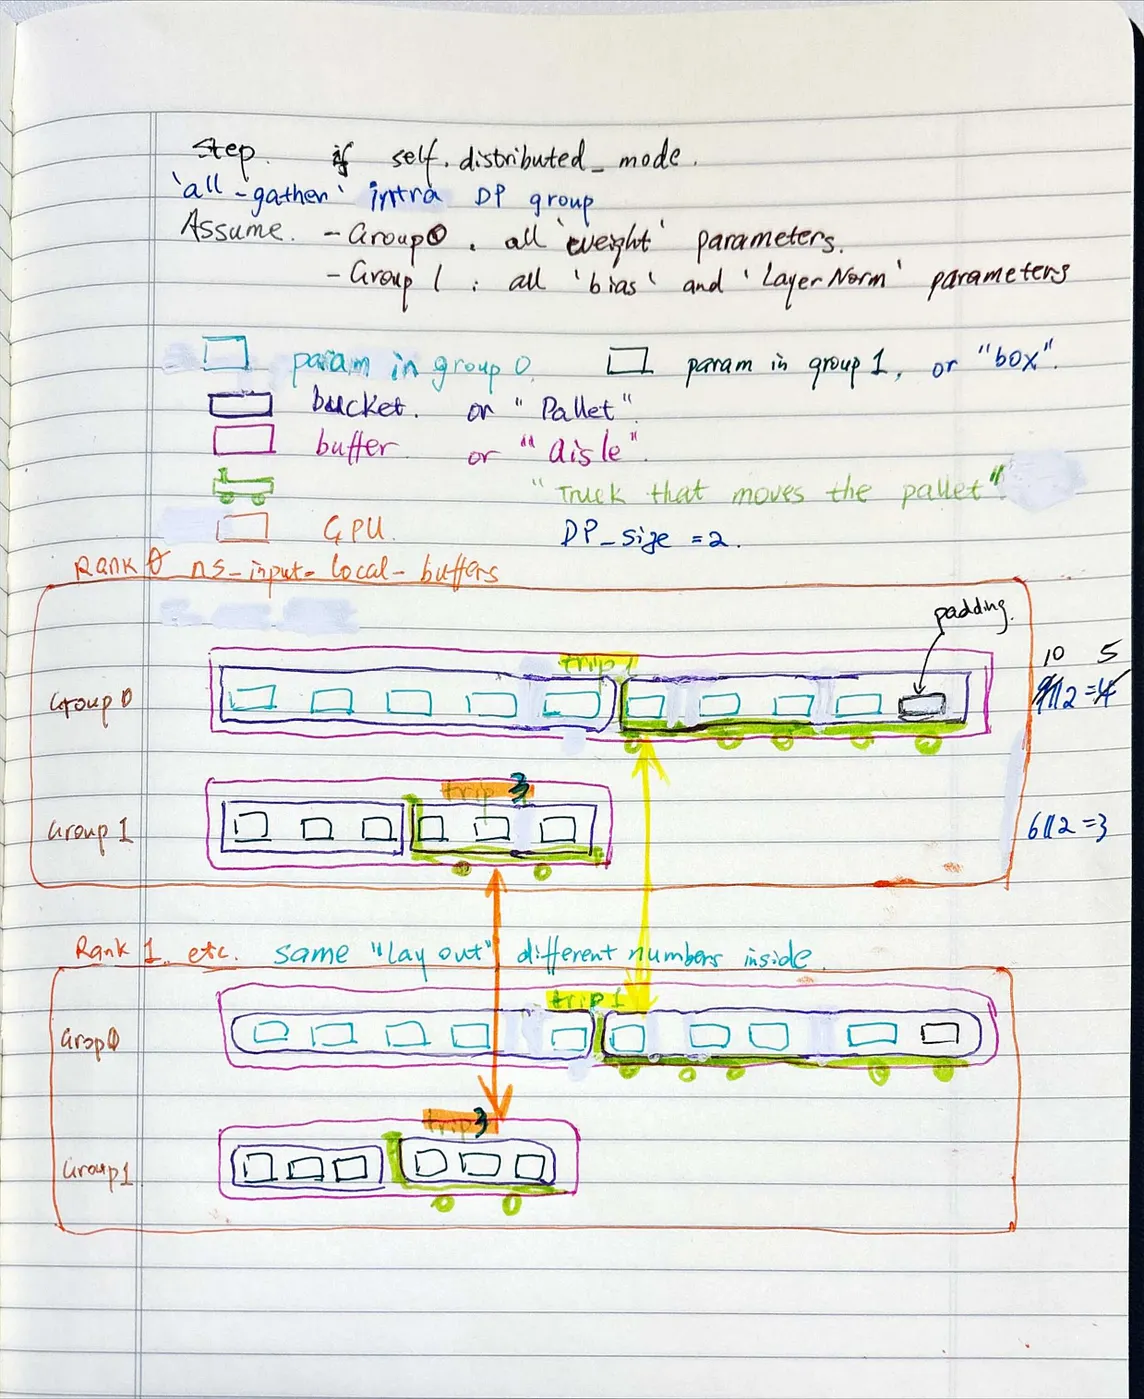 Step. if self.distributed_mode.
'all-gather' intra DP group
Assume. - Group0. all 'weight' parameters.
- Group 1: all 'bias' and 'LayerNorm' parameters
param in group 0. param in group 1, or "box".
bucket. or "Pallet".
buffer or "aisle".
"Truck that moves the pallet".
GPU. DP_size = 2.
Rank 0 ns_input_local_buffers
padding.
trip 1
10 5
Group 0
9//2 = 4
trip 3
Group 1
6//2 = 3
Rank 1. etc. same "lay out" different numbers inside.
trip 1
Grop0
trip 3
Group1